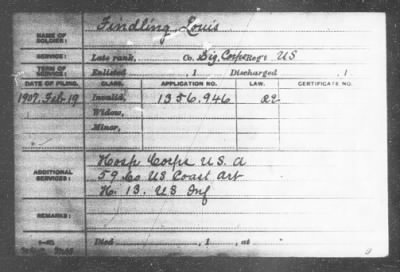 NAME OF SOLDIER: Findling, Louis
SERVICE: Late rank, Co. Sig. Corps Reg't US
TERM OF SERVICE: Enlisted , 1 Discharged , 1
DATE OF FILING. CLASS. APPLICATION NO. LAW. CERTIFICATE NO.
1907. Feb 19 Invalid, 1356.946
Widow,
Minor,
ADDITIONAL SERVICES: Hosp Corps U.S. A
59 Co US Coast Art
H. 13. US Inf
REMARKS:
Died , 1 , at